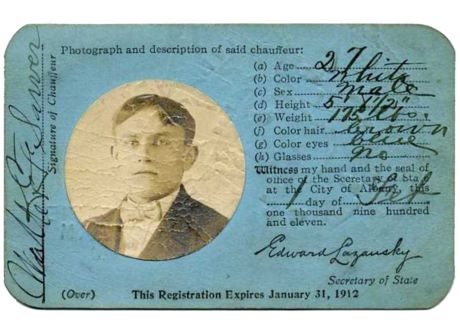 Photograph and description of said chauffeur:
(a) Age 27
(b) Color White
(c) Sex male
(d) Height
(e) Weight lbs.
(f) Color hair brown
(g) Color eyes blue
(h) Glasses no
Witness my hand and the seal of
office of the Secretary of State
at the City of Albany, this
day of
one thousand nine hundred
and eleven.
Edward Lazansky
Secretary of State
Signature of Chauffeur
(Over) This Registration Expires January 31, 1912